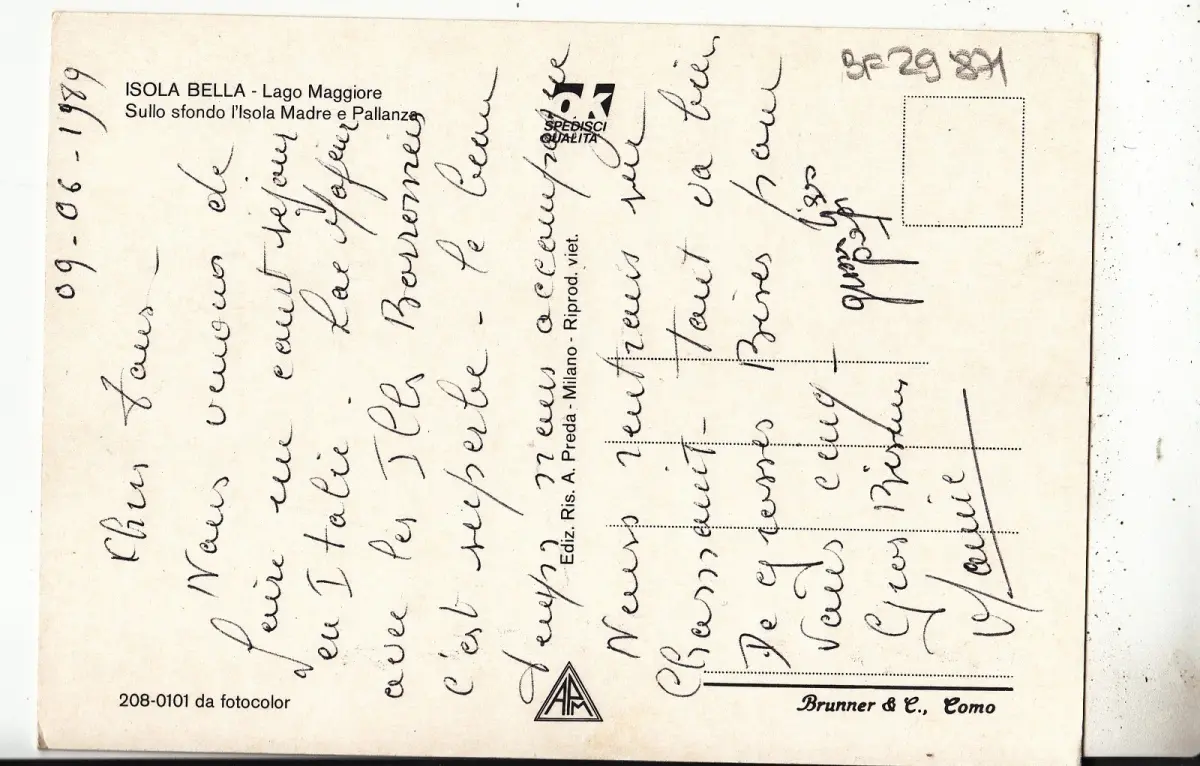 ISOLA BELLA - Lago Maggiore
Sullo sfondo l'Isola Madre e Pallanza
ok
SPEDISCI
QUALITÀ
BF 29 871
09-06-1989
Chers tous -
Nous venons de
faire un court séjour
en Italie. Lac Majeur
avec les Iles Borromées
C'est superbe - le beau
temps nous accompagne
Nous rentrons sur
Chassenit - Tout va bien
De grosses Bises pour
vous cinq -
Gros Bisous
Ediz. Ris. A. Preda - Milano - Riprod. viet.
APM
208-0101 da fotocolor
Brunner & C., Como